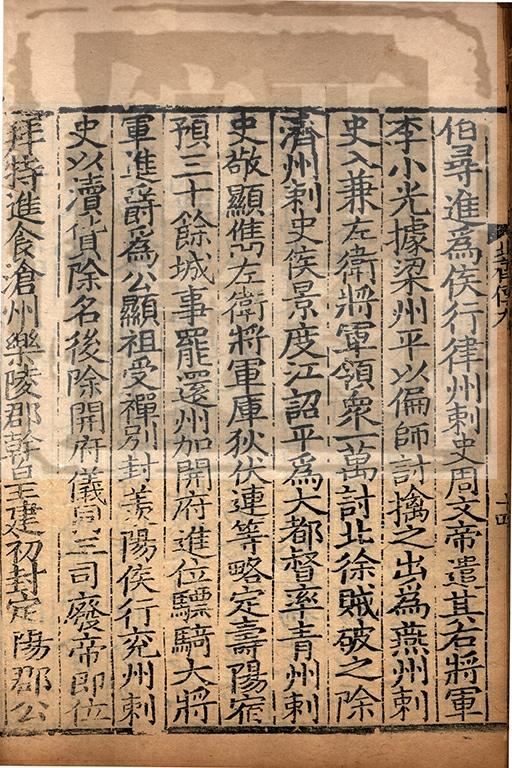 伯尋進爲侯行律州刺史周文帝遣其右將軍
李小光據梁州平以偏師討擒之出爲燕州刺
史入兼左衛將軍領衆一萬討北徐賊破之除
濟州刺史侯景度江詔平爲大都督率青州刺
史敬顯儁左衛將軍庫狄伏連等略定壽陽宿
預三十餘城事罷還州加開府進位驃騎大將
軍進爵爲公顯祖受禪別封羨陽侯行兖州刺
史以瀆貨除名後除開府儀同三司廢帝即位
拜特進食滄州樂陵郡幹皇建初封定陽郡公